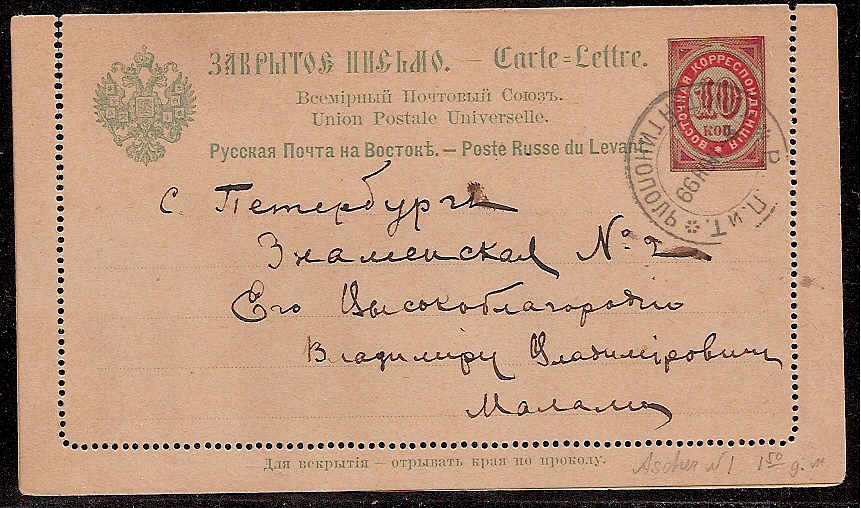 ЗАКРЫТОЕ ПИСЬМО. — Carte=Lettre.
Всемірный Почтовый Союзъ.
Union Postale Universelle.
Русская Почта на Востокѣ. — Poste Russe du Levant.
ВОСТОЧНАЯ КОРРЕСПОНДЕНЦІЯ
10
КОП.
П. и Т.
99
С. Петербургъ
Знаменская № 2
Его Высокоблагородію
Владиміру Владиміровичу
Малама
Для вскрытія — отрывать края по проколу.
Ascher N 1 1 50